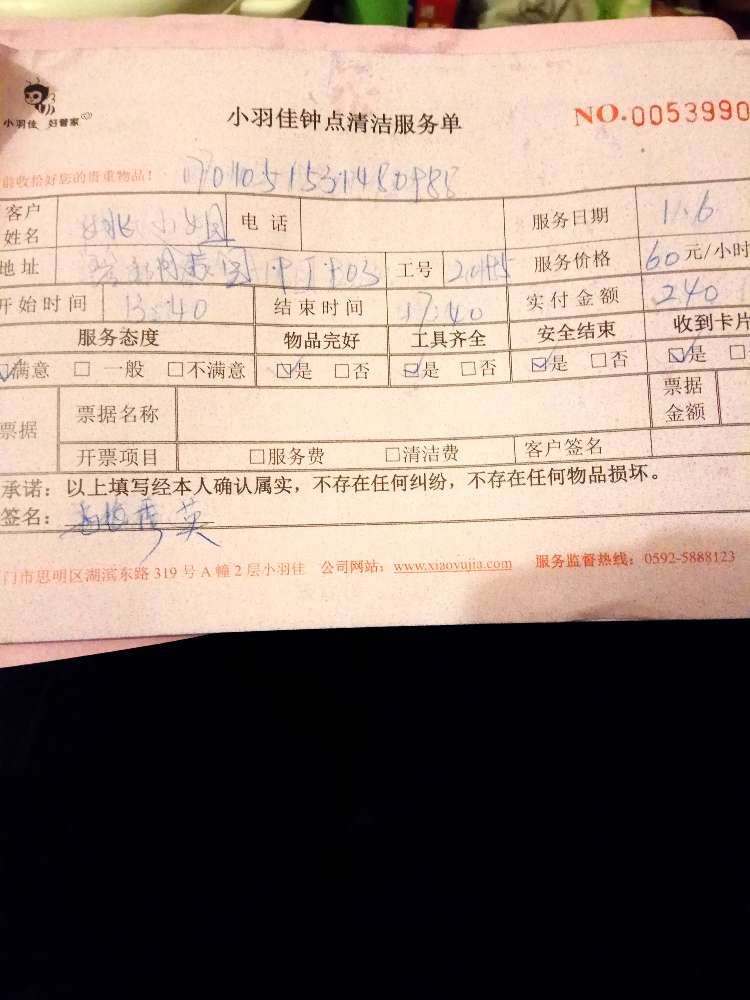 小羽佳 好管家
小羽佳钟点清洁服务单
NO.0053990
前收拾好您的贵重物品!
客户姓名 姚小姐 电话 服务日期 11.6
地址 工号 服务价格 60元/小时
开始时间 13:40 结束时间 17:40 实付金额 240
服务态度 物品完好 工具齐全 安全结束 收到卡片
☑满意 □一般 □不满意 ☑是 □否 ☑是 □否 ☑是 □否 ☑是 □
票据 票据名称 票据金额
开票项目 □服务费 □清洁费 客户签名
承诺:以上填写经本人确认属实,不存在任何纠纷,不存在任何物品损坏。
签名: 英
门市思明区湖滨东路319号A幢2层小羽佳 公司网站:www.xiaoyujia.com 服务监督热线:0592-5888123